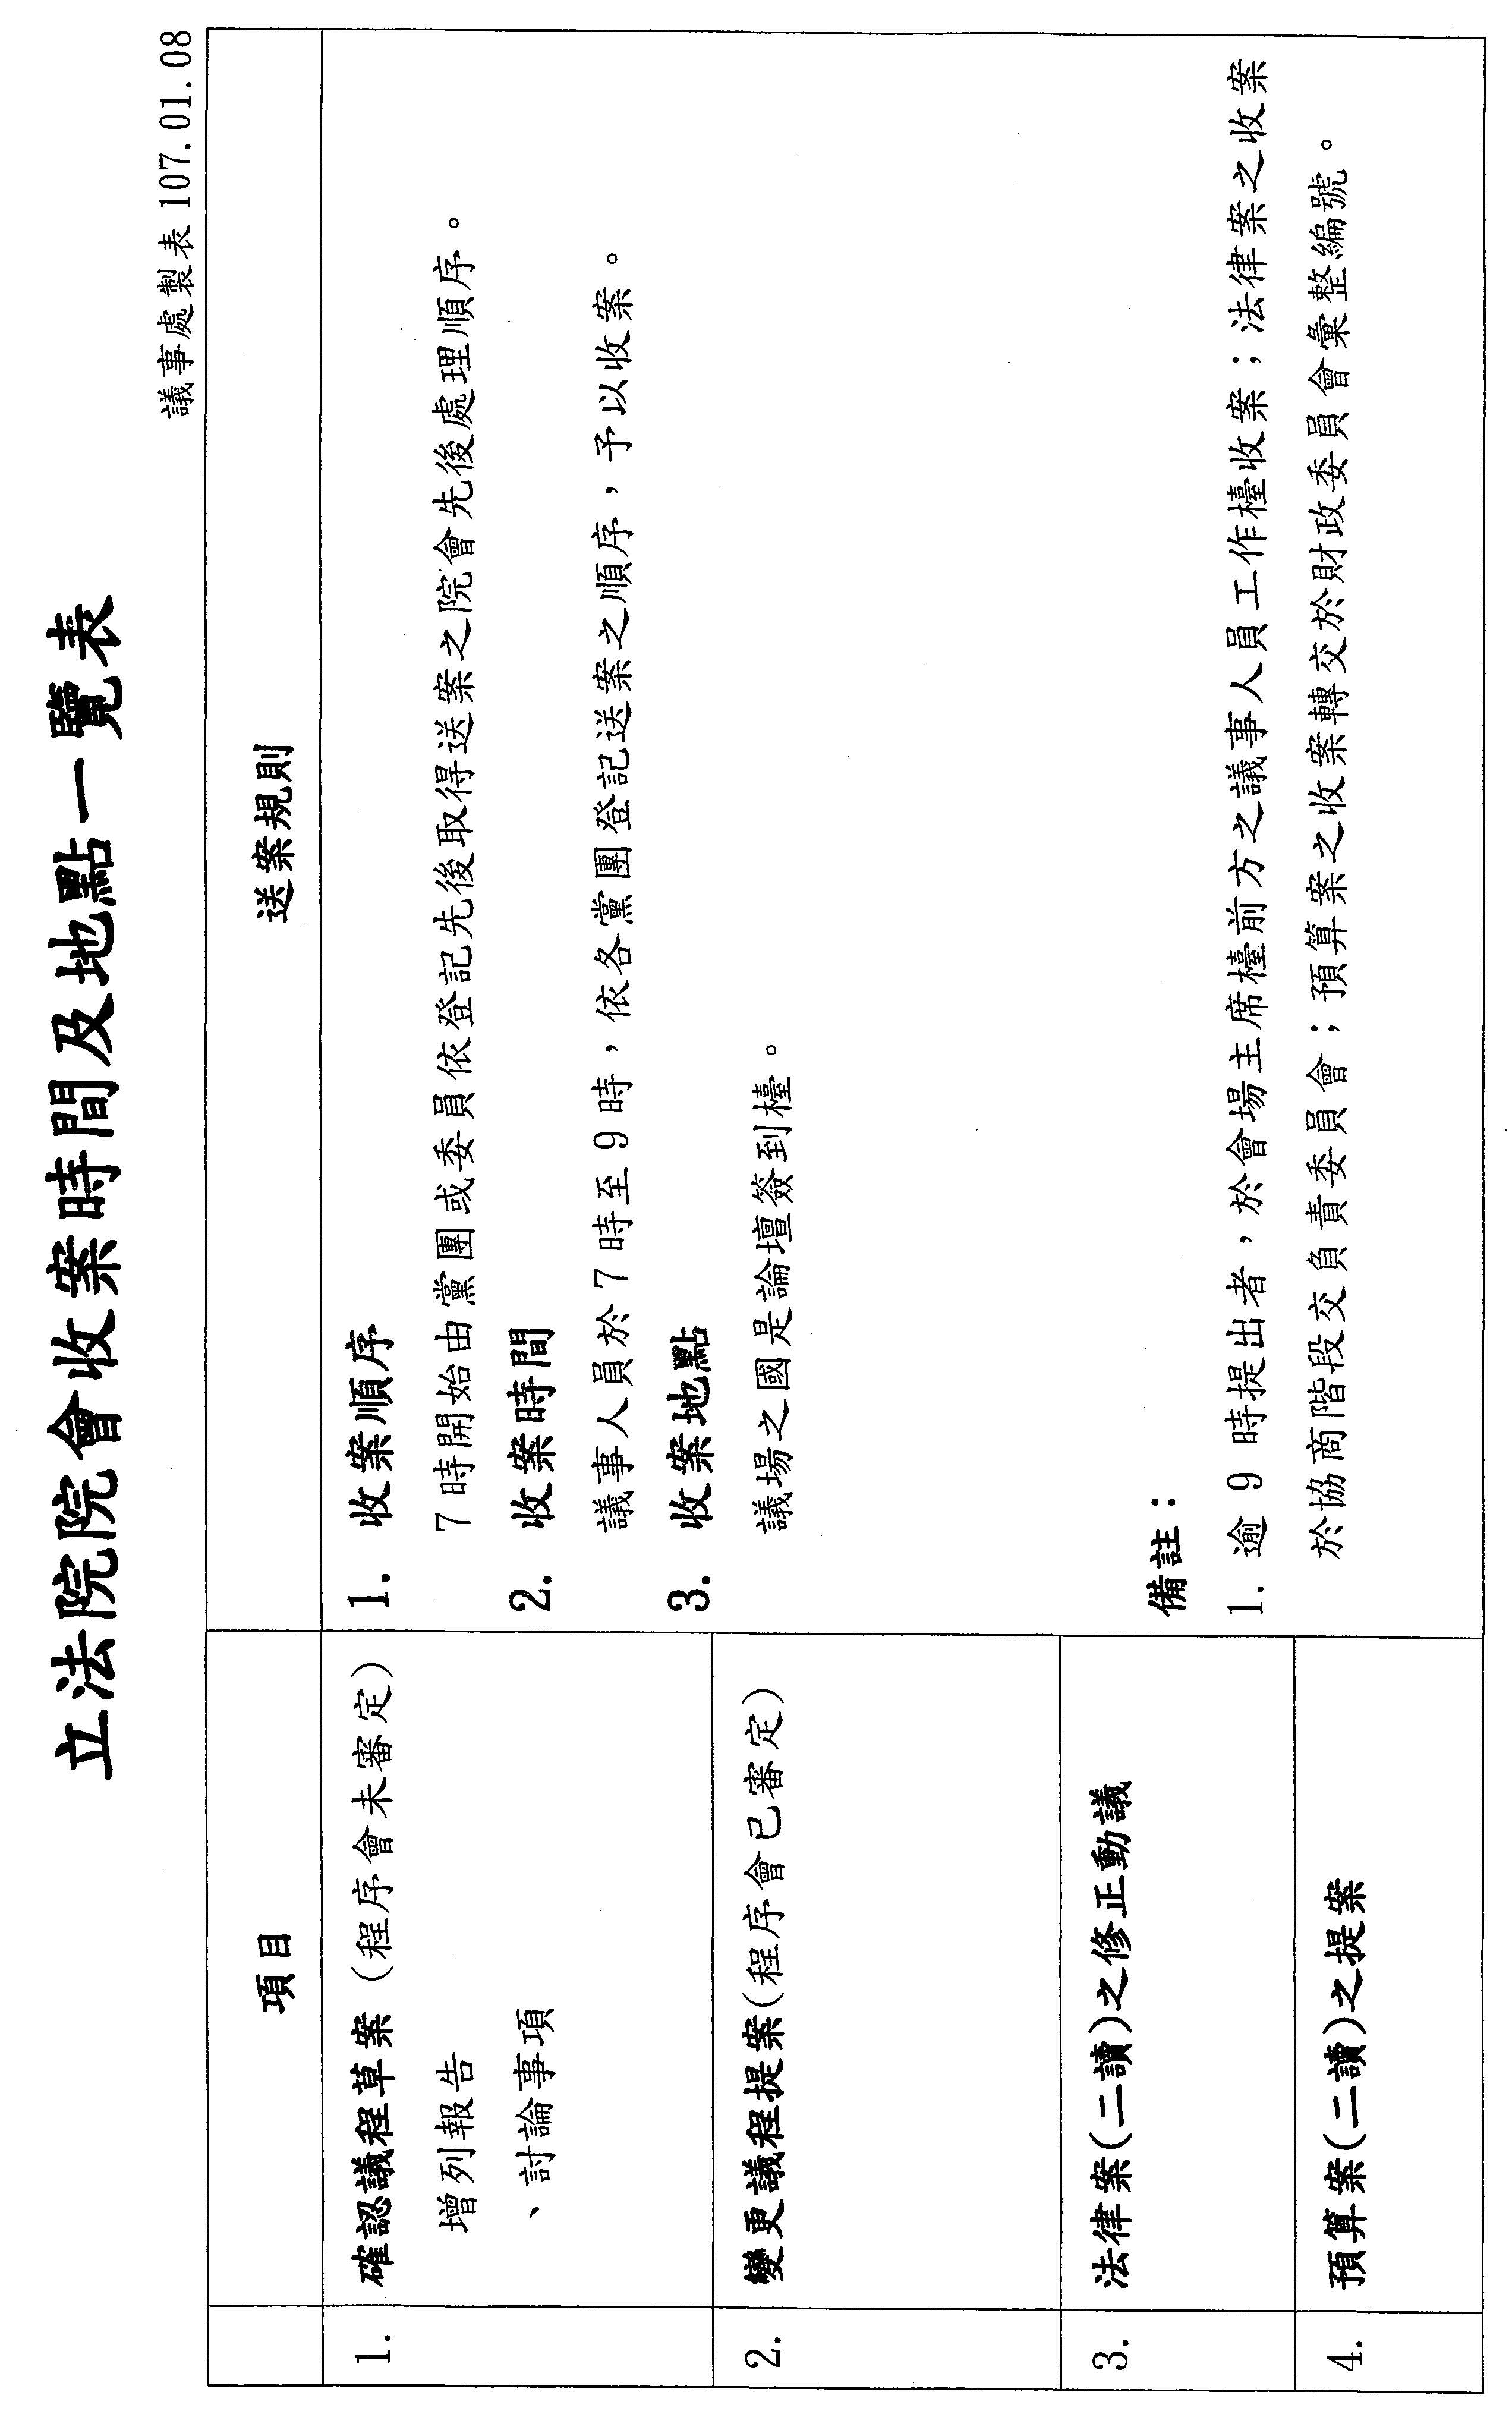 立法院院會收案時間及地點一覽表
議事處製表 107.01.08
項目
送案規則
1.
確認議程草案（程序會未審定）
增列報告
、討論事項
2.
變更議程提案(程序會已審定)
3.
法律案(二讀)之修正動議
4.
預算案(二讀)之提案
1. 收案順序
7 時開始由黨團或委員依登記先後取得送案之院會先後處理順序。
2. 收案時間
議事人員於 7 時至 9 時，依各黨團登記送案之順序，予以收案。
3. 收案地點
議場之國是論壇簽到檯。
備註：
1. 逾 9 時提出者，於會場主席檯前方之議事人員工作檯收案；法律案之收案
於協商階段交負責委員會；預算案之收案轉交於財政委員會彙整編號。